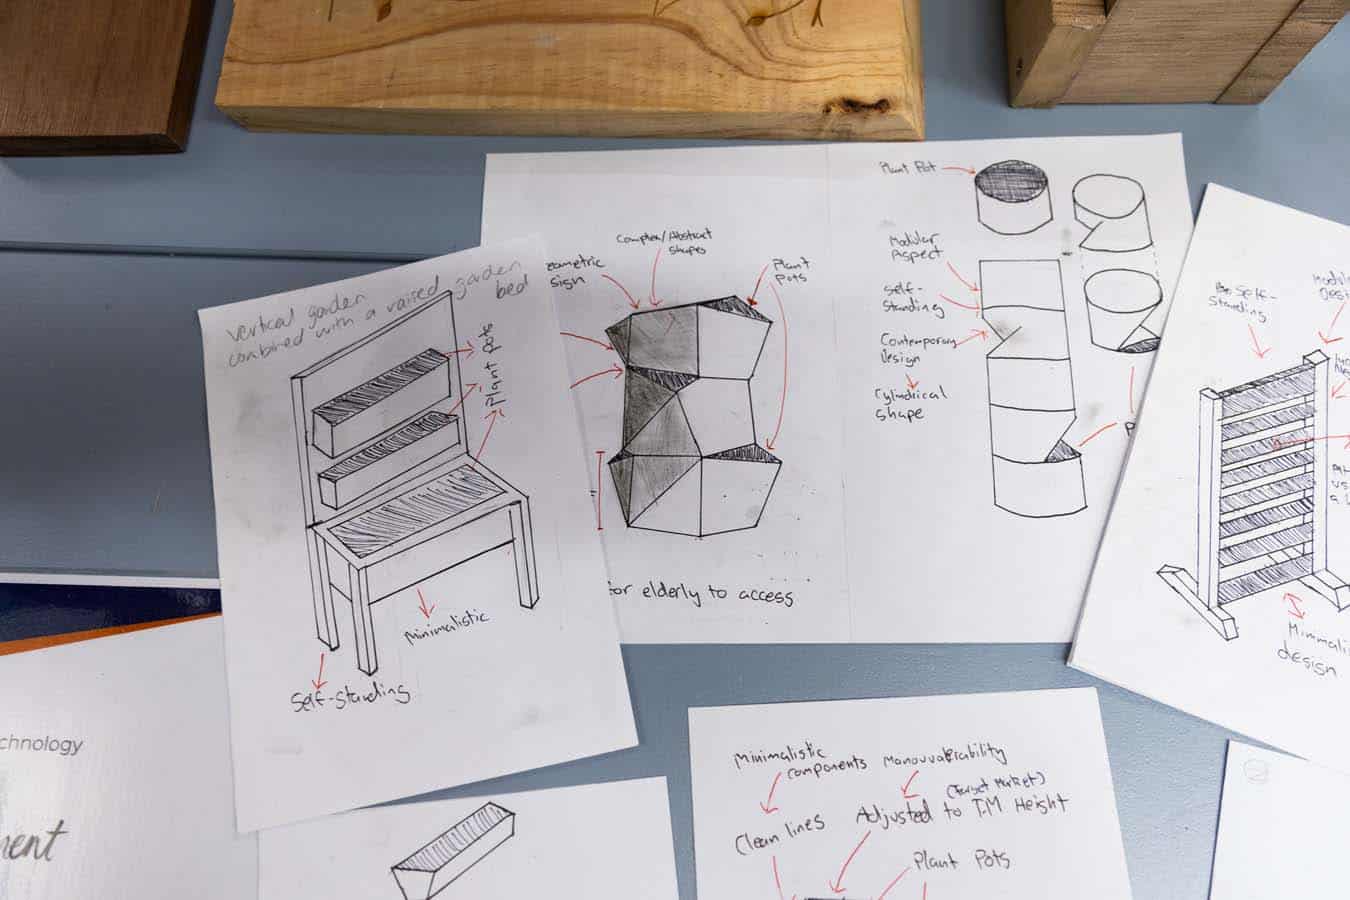 vertical garden
combined with a raised garden
bed
Plant Pots
minimalistic
Self-standing
Complex/Abstract
shapes
Plant
Pots
for elderly to access
Plant Pot
Modular
Aspect
self-
standing
Contemporary
Design
Cylindrical
shape
Self-
Standing
design
minimalistic
components
Manouvarability
Clean lines
(Target Market)
Adjusted to T.M Height
Plant Pots